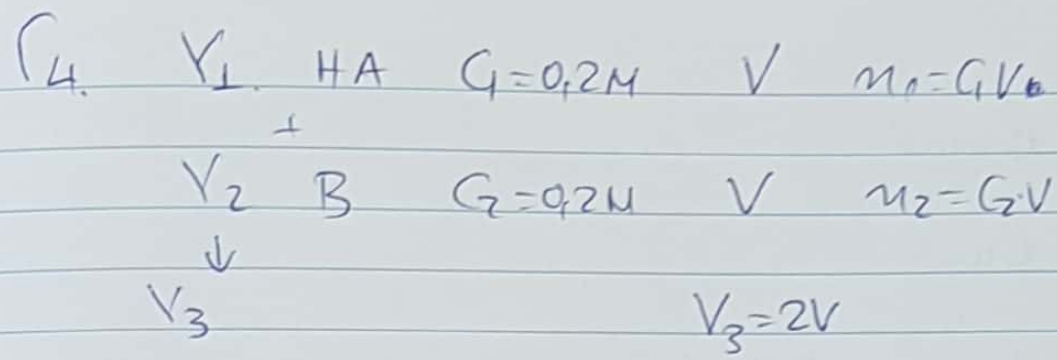 Γ4. Y1. HA C1=0,2M V n1=C1V
+
Y2 B C2=0,2M V n2=C2·V
↓
Y3 V3=2V